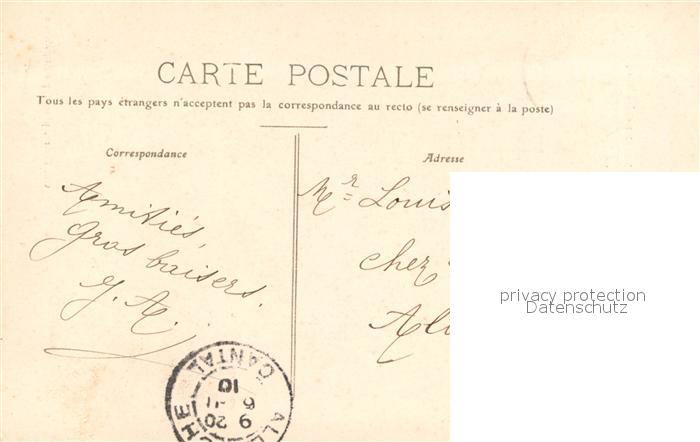 CARTE POSTALE
Tous les pays étrangers n'acceptent pas la correspondance au recto (se renseigner à la poste)
Correspondance
Adresse
Amitiés,
Gros baisers.
Mr Louis
chez
privacy protection
Datenschutz
CANTAL
10
9 20